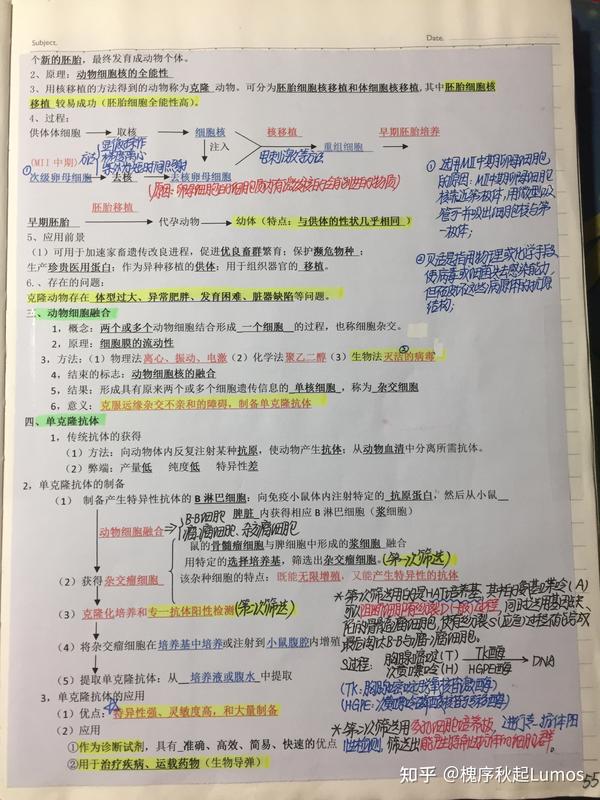 Subject.
Date.
个新的胚胎，最终发育成动物个体。
2、原理：动物细胞核的全能性
3、用核移植的方法得到的动物称为克隆 动物。可分为胚胎细胞核移植和体细胞核移植,其中胚胎细胞核
移植 较易成功（胚胎细胞全能性高）。
4、过程：
供体体细胞 取核 细胞核 核移植 早期胚胎培养
注入 重组细胞
显微操作
(MII 中期) 方法 梯度离心 电刺激等方法
紫外光短时间照射
① 次级卵母细胞 去核 去核卵母细胞
胚胎移植
早期胚胎 代孕动物 幼体（特点：与供体的性状几乎相同 ）
① 选用MII中期卵母细胞
的原因：MII中期卵母细胞
核靠近第一极体，用微型吸
管可并吸出细胞核与第
一极体；
5、应用前景
（1）可用于加速家畜遗传改良进程，促进优良畜群繁育；保护濒危物种；
生产珍贵医用蛋白；作为异种移植的供体；用于组织器官的 移植。
6.、存在的问题：
克隆动物存在 体型过大、异常肥胖、发育困难、脏器缺陷等问题。
② 灭活是指用物理或化学手段
使病毒或细菌失去感染能力，
但不破坏这些病原体的抗原
结构；
三、动物细胞融合
1、概念：两个或多个动物细胞结合形成 一个细胞 的过程，也称细胞杂交。
2、原理：细胞膜的流动性
3，方法：（1）物理法离心、振动、电激（2）化学法聚乙二醇（3）生物法灭活的病毒 ②
4、结束的标志：动物细胞核的融合
5、结果：形成具有原来两个或多个细胞遗传信息的 单核细胞 ，称为 杂交细胞
6、意义： 克服远缘杂交不亲和的障碍，制备单克隆抗体
四、单克隆抗体
1，传统抗体的获得
（1）方法：向动物体内反复注射某种抗原，使动物产生抗体；从动物血清中分离所需抗体。
（2）弊端：产量低 纯度低 特异性差
2，单克隆抗体的制备
（1） 制备产生特异性抗体的 B 淋巴细胞：向免疫小鼠体内注射特定的 抗原蛋白，然后从小鼠
脾脏 内获得相应 B 淋巴细胞（浆细胞）
动物细胞融合 B-B细胞
瘤-瘤细胞、杂交瘤细胞
鼠的骨髓瘤细胞与脾细胞中形成的浆细胞 融合
用特定的选择培养基，筛选出杂交瘤细胞。（第一次筛选）
（2）获得杂交瘤细胞 该杂种细胞的特点：既能无限增殖，又能产生特异性的抗体
（3）克隆化培养和专一抗体阳性检测（第2次筛选）
（4）将杂交瘤细胞在培养基中培养或注射到小鼠腹腔内增殖
（5）提取单克隆抗体：从 培养液或腹水 中提取
＊第一次筛选用的是HAT培养基，其中的氨基蝶呤（A）
S过程：胸腺嘧啶（T） TK酶
次黄嘌呤（H） HGPE酶 DNA
3，单克隆抗体的应用
（1）优点：特异性强、灵敏度高，和大量制备
（2）应用
①作为诊断试剂，具有 准确、高效、简易、快速的优点
②用于治疗疾病、运载药物（生物导弹）
知乎 @槐序秋起Lumos
55